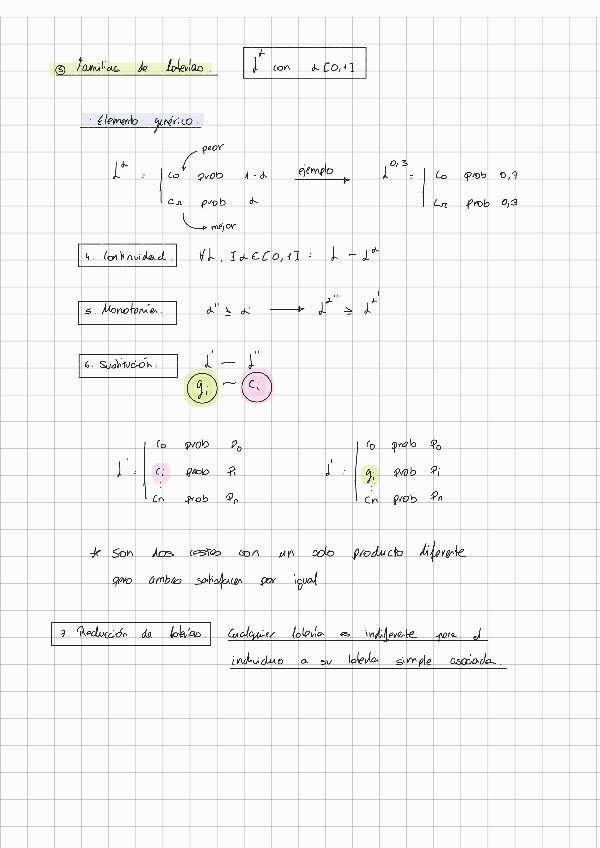 ③ Familias de loterías. L^α con α [0,1]
· Elemento genérico.
peor
L^α = | c0 prob 1-α ejemplo → L^0,3 = | c0 prob 0,7
cn prob α cn prob 0,3
mejor
4. Continuidad. ∀L, ∃α∈[0,1] : L ~ L^α
5. Monotonía. α'' ≥ α' → L^α'' ≥ L^α'
6. Sustitución. L' ~ L''
gi ~ ci
c0 prob P0 c0 prob P0
L' : ci prob Pi L' : gi prob Pi
: cn prob Pn : cn prob Pn
* Son dos cestas con un solo producto diferente
pero ambas satisfacen por igual
7. Reducción de loterías. Cualquier lotería es indiferente para el
individuo a su lotería simple asociada.